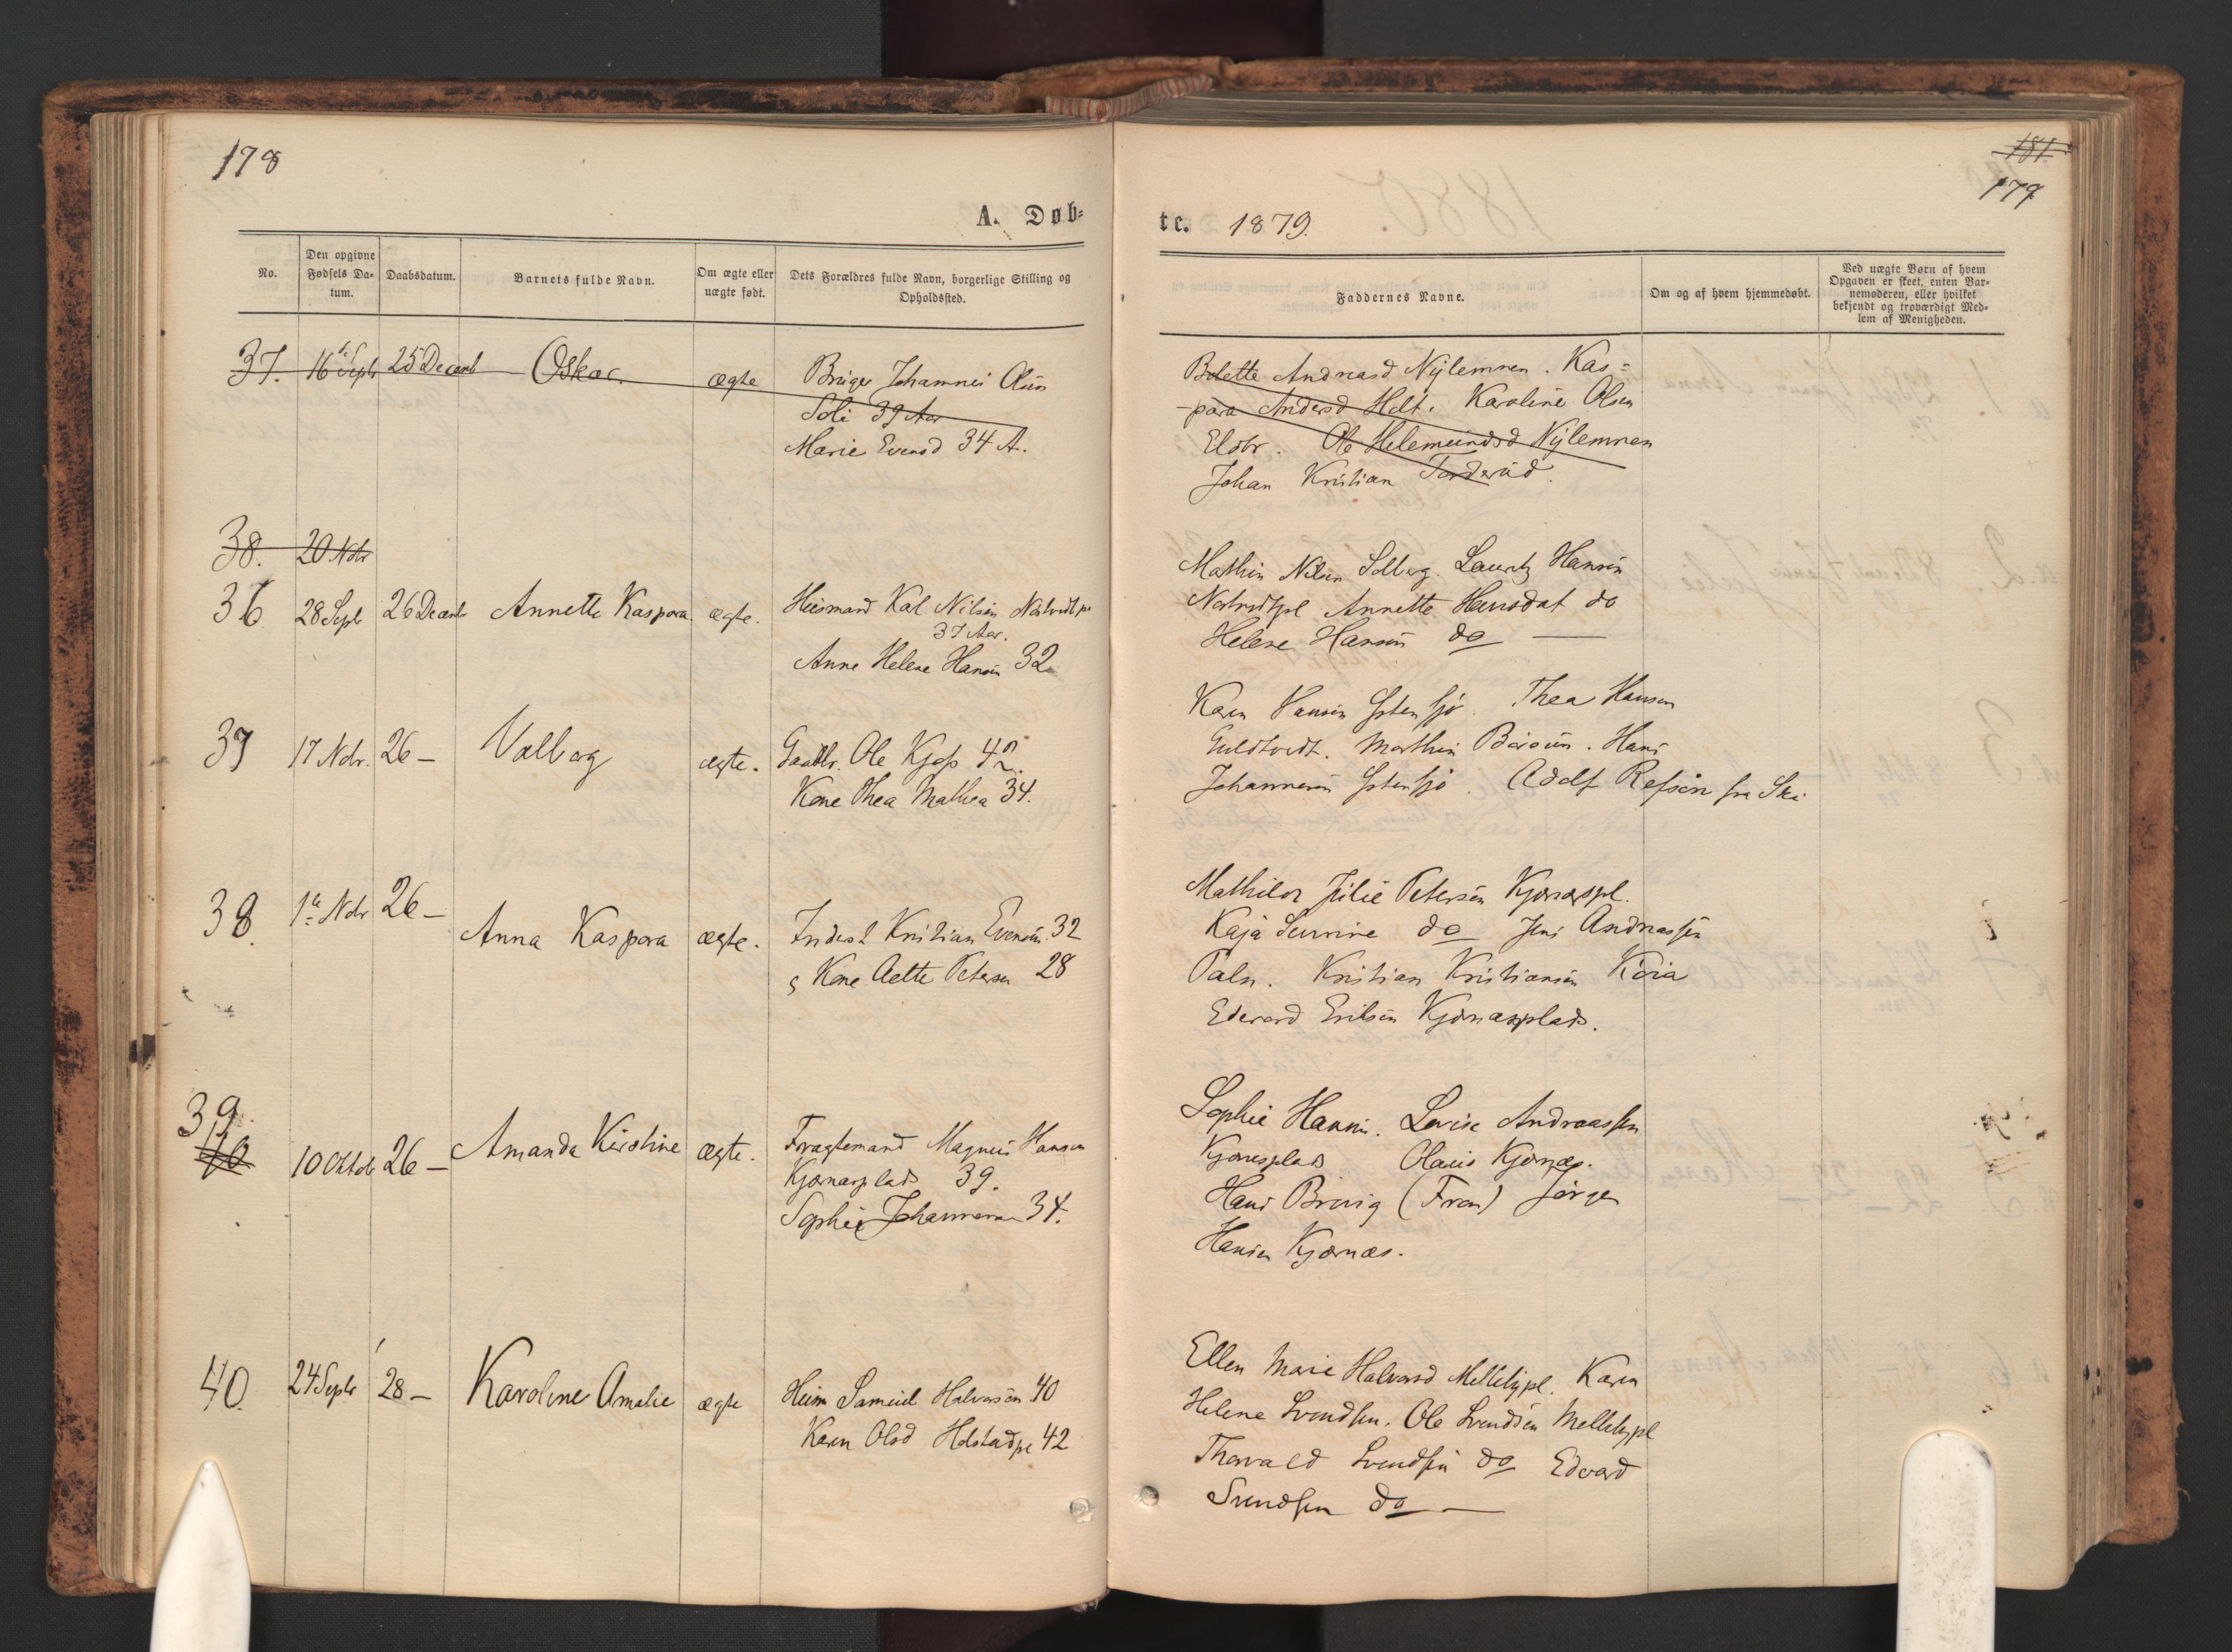 178
A. Døb=
No.
Den opgivne
Fødsels Da-
tum.
Daabsdatum.
Barnets fulde Navn.
Om ægte eller
uægte født.
Dets Forældres fulde Navn, borgerlige Stilling og
Opholdssted.
37. 16de Septr 25 Decemb Oskar. ægte Bruger Johannes Olsen
Soli 39 Aar
Marie Evensd 34 A.
38. 20 Nobr
36 28 Sept 26 Decemb Annette Kaspara. ægte. Huusmand Karl Nilsen
37 Aar.
Anne Helene Hansen 32
37 17 Nobr. 26 — Valborg ægte. Ole 42.
Kone Thea Mathea 34.
38. 1te Nobr 26 — Anna Kaspara ægte. Inderst Kristian Evensen. 32
Kone Petersen 28
39.
40
10 Oktob 26 — Amanda Kirstine ægte. Fragtemand Magnus Hansen
Kjærnæsplads 39.
Sophie Johannesen 34.
40. 24 Septr 28 — Karoline Amalie ægte Huusm Samuel Halvorsen 40
Karen Olsd 42
181
179
te. 1879.
Faddernes Navne.
Om og af hvem hjemmedøbt.
Ved uægte Børn af hvem
Opgaven er skeet, enten Bar-
nemoderen, eller hvilket
bekjendt og troværdigt Med-
lem af Menigheden.
Bolette Andreasd Nylemnen. Kas=
-para Andersd Holt. Karoline Olsen
Ole Nylemnen
Johan Kristian
Nilsen Solberg. Lauritz Hansen
Annette Hansdat do
Helene Hansen do —
Karen Hansen Østensjø. Thea Hansen
Hans
Johannesen Østensjø. Adolf fra Ski
Mathilde Julie Petersen Kjærnæspl.
Kaja Severine do Jens Andreassen
Kristian Kristiansen
Edevard Eriksen Kjærnæsplads.
Sophie Hansen. Lovise Andreassen
Kjærnæsplads Olaus Kjærnæs.
Hans (Fron) Jørgen
Hansen Kjærnæs.
Ellen Marie Halvorsd Mellebypl. Karen
Helene Svendsen. Ole Svendsen Mellebypl
Thorvald Svendsen do Edvard
Svendsen do —